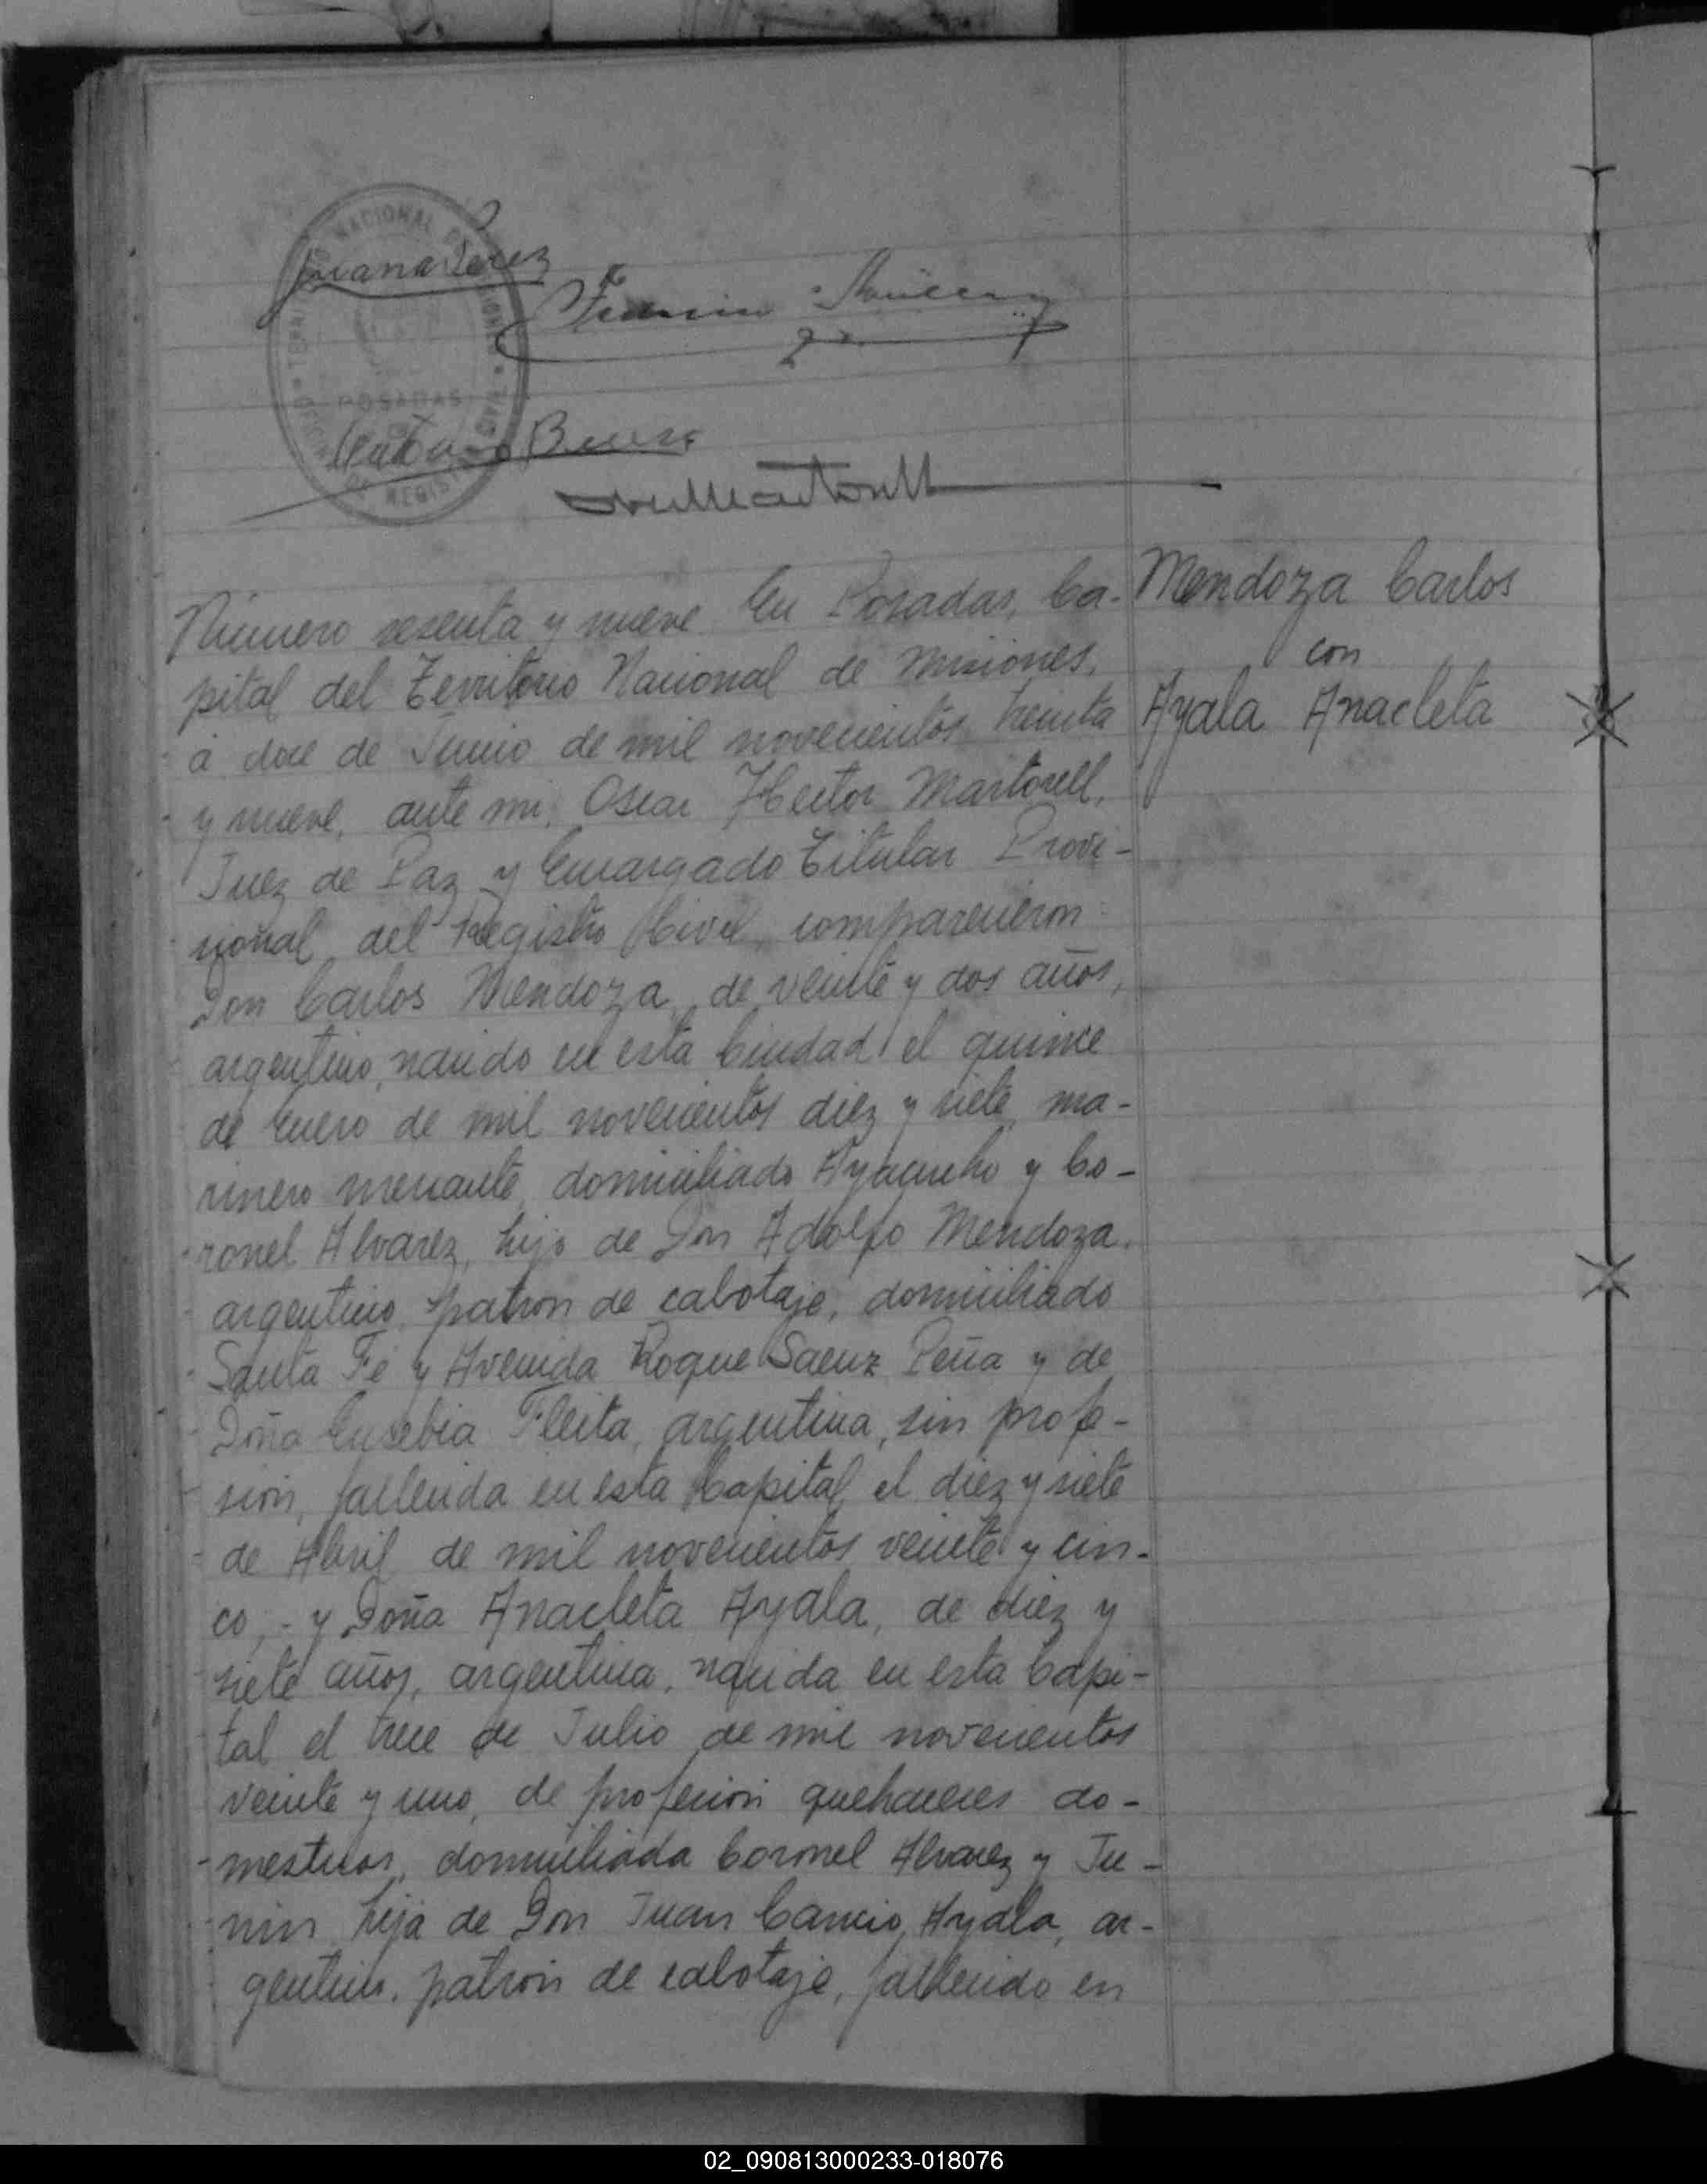 Juana Perez
POSADAS
Número sesenta y nueve. En Posadas, Ca-
pital del Territorio Nacional de Misiones,
á doce de Junio de mil novecientos treinta
y nueve, ante mi, Oscar Hector Martorell,
Juez de Paz y Encargado Titular Provi-
cional del Registro Civil, comparecieron
Don Carlos Mendoza, de veinte y dos años,
argentino, nacido en esta Ciudad el quince
de Enero de mil novecientos diez y siete, ma-
rinero mercante, domiciliado Ayacucho y Co-
ronel Alvarez, hijo de Don Adolfo Mendoza,
argentino, patron de cabotaje, domiciliado
Santa Fé y Avenida Roque Saenz Peña y de
Doña Eusebia Fleita, argentina, sin profe-
sion, fallecida en esta Capital el diez y siete
de Abril de mil novecientos veinte y cin-
co, - y Doña Anacleta Ayala, de diez y
siete años, argentina, nacida en esta Capi-
tal el trece de Julio de mil novecientos
veinte y uno, de profesion quehaceres do-
mesticos, domiciliada Coronel Alvarez y Ju-
nin, hija de Don Juan Cancio Ayala, ar-
gentino, patron de cabotaje, fallecido en
Mendoza Carlos
con
Ayala Anacleta
02_090813000233-018076